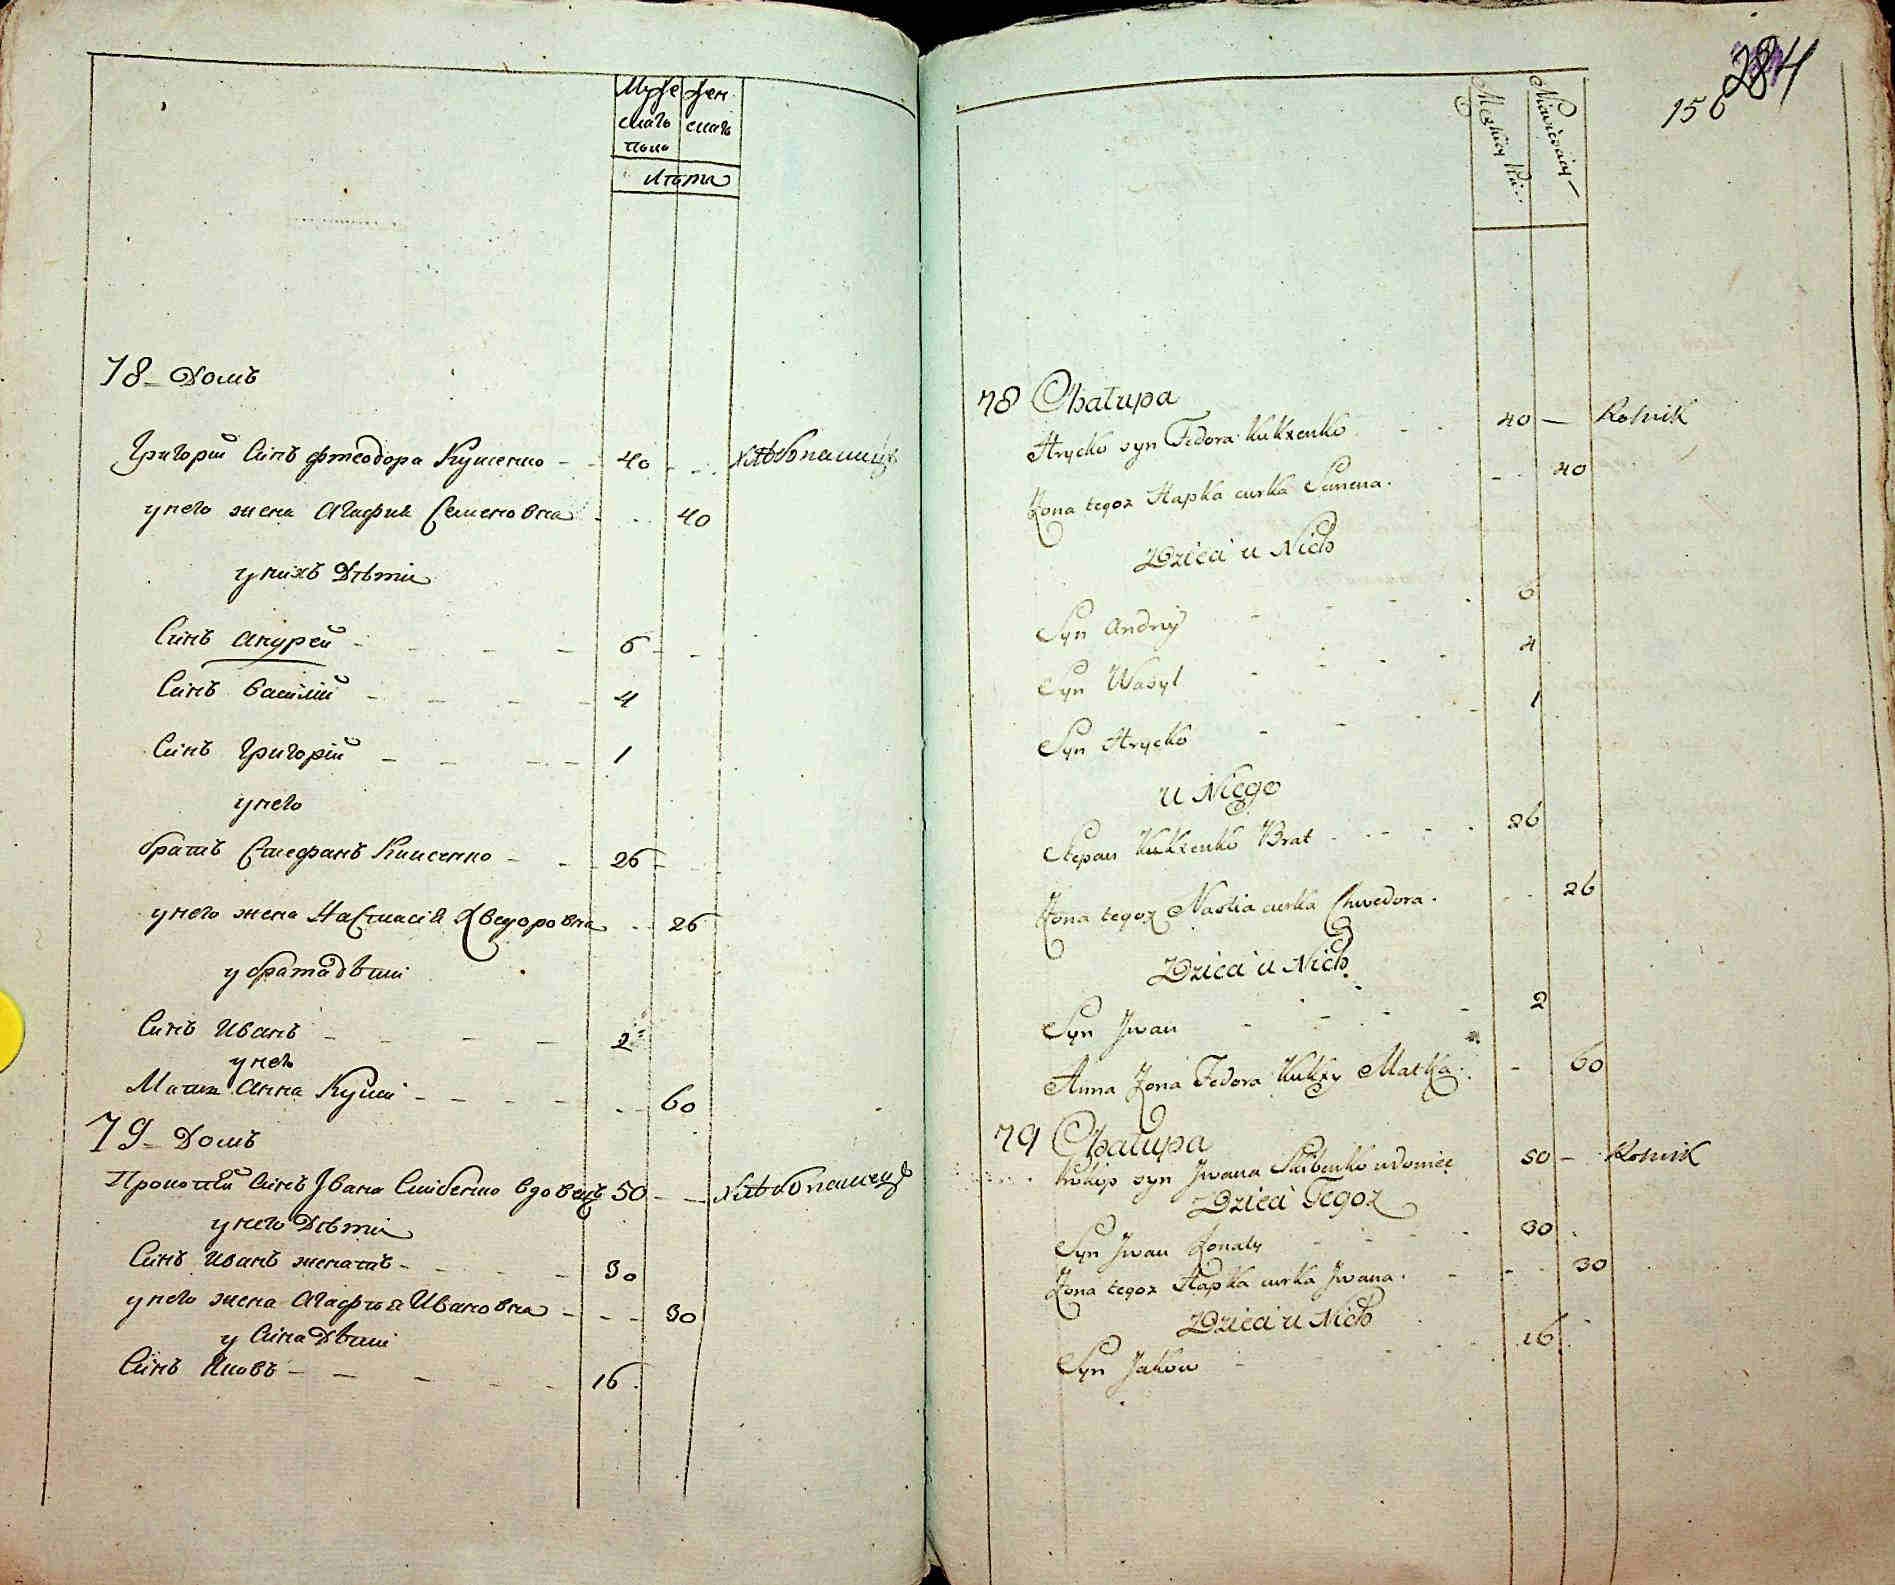 Муже жен
скаго скаго
пола
Лѣта
78 Домъ
Григорій Синъ фтеодора Кушенко 40 хлѣбопашецъ
у него жена Агафия Семеновна 40
у нихъ Дѣти
Синъ Андрей 6
Синъ Василій 4
Синъ Григорій 1
у него
братъ Стефанъ 26
у него жена Настасія Хведоровна 26
у брата дѣти
Синъ Иванъ 2
у него
Мать Анна 60
79 Домъ
Прокопій Синъ Ивана Скибенко вдовецъ 50 хлѣбопашецъ
у него Дѣти
Синъ Иванъ женатъ 30
у него жена Агафія Ивановна 30
у Сина Дѣти
Синъ Яковъ 16
284
156
Niewieściey
78 Chałupa
Hrycko syn Fedora Kukzenko 40 Rolnik
Żona tegoz Hapka curka Semena 40
Dzieci u Nich
Syn Andriy 6
Syn Wasyl 4
Syn Hrycko 1
u Niego
Stepan Kukzenko Brat 26
Żona tegoz Nastia curka Chwedora 26
Dzieci u Nich
Syn Jwan 2
Anna Żona Fedora Kukzy Matka 60
79 Chałupa
Prokip syn Jwana Skibenko wdowiec 50 Rolnik
Dzieci Tegoz
Syn Jwan Żonaty 30
Żona tegoz Hapka curka Jwana 30
Dzieci u Nich
Syn Jakow 16